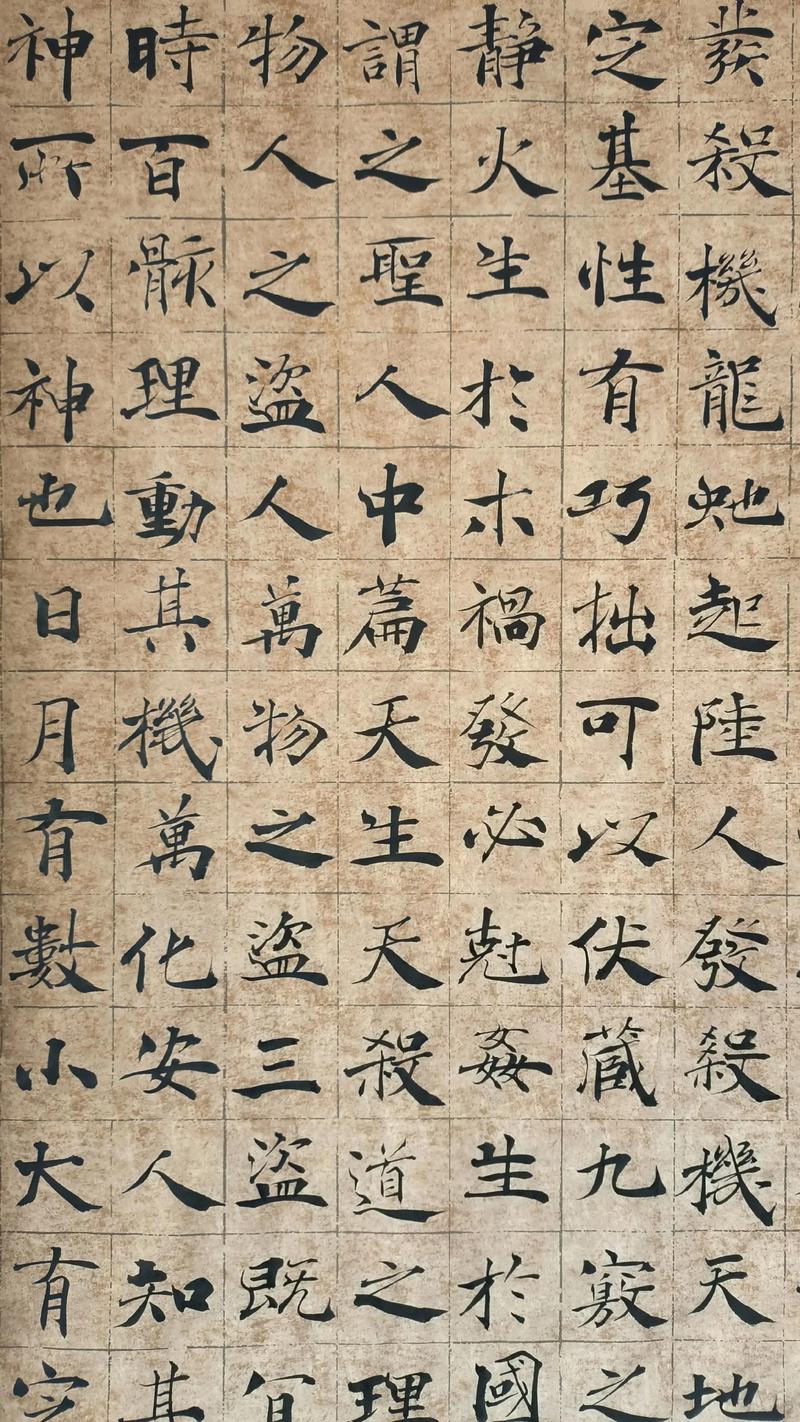 發殺機龍虵起陸人發殺機天地
定基性有巧拙可以伏藏九竅之
靜火生於木禍發必尅姦生於國
謂之聖人中篇天生天殺道之理
物人之盜人萬物之盜三盜既宜
時百骸理動其機萬化安人知其
神所以神也日月有數小大有定